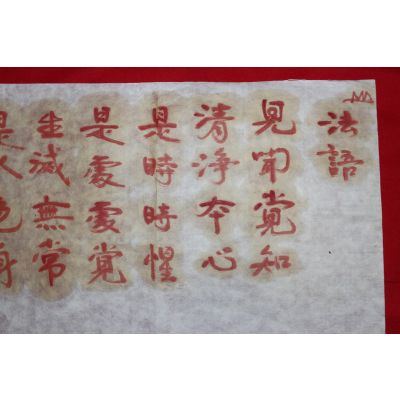 法語
見聞覚知
清浄本心
是時時惺
是處處覚
生滅無常
是人色身